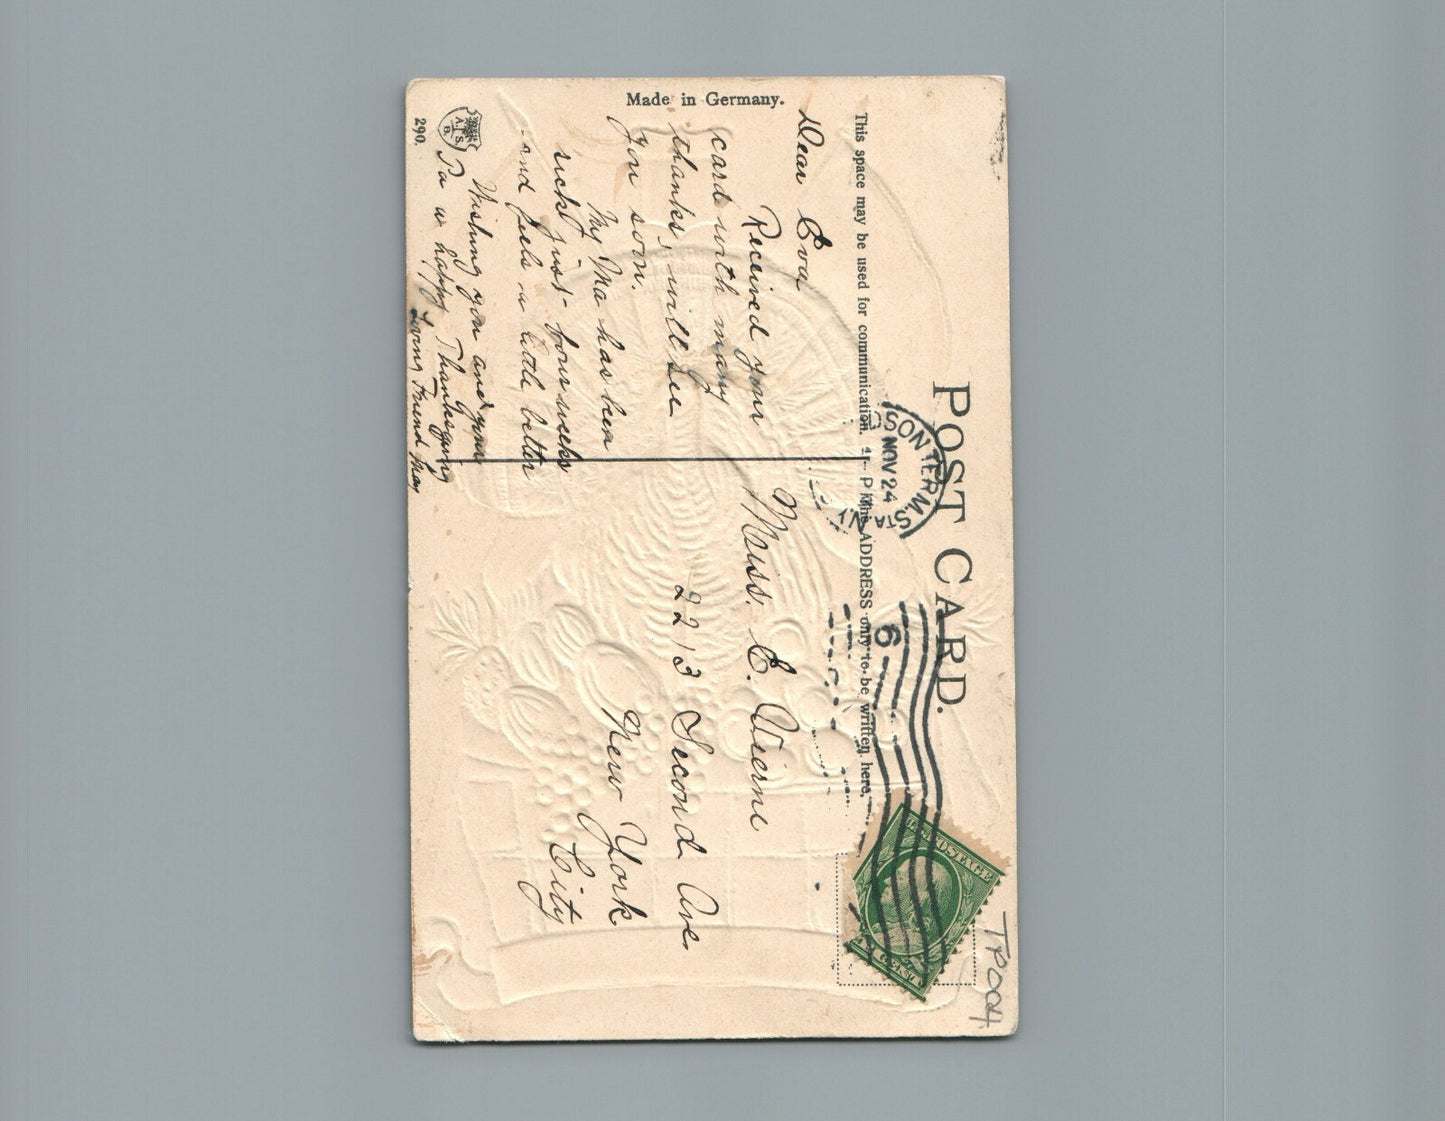 POST CARD.
This space may be used for communication.
The ADDRESS only to be written here.
DSON TERM. STA. N.Y.
NOV 24
6
U.S. POSTAGE
TP004
Dear Eva
Received your
card with many
thanks, will see
you soon.
My Ma has been
sick just four weeks
and feels a little better
Wishing you and your
Pa a happy Thanksgiving
Loving Friend May
Miss. E. Vierne
2213 Second Ave.
New York
City
Made in Germany.
A.S.
B.
290.